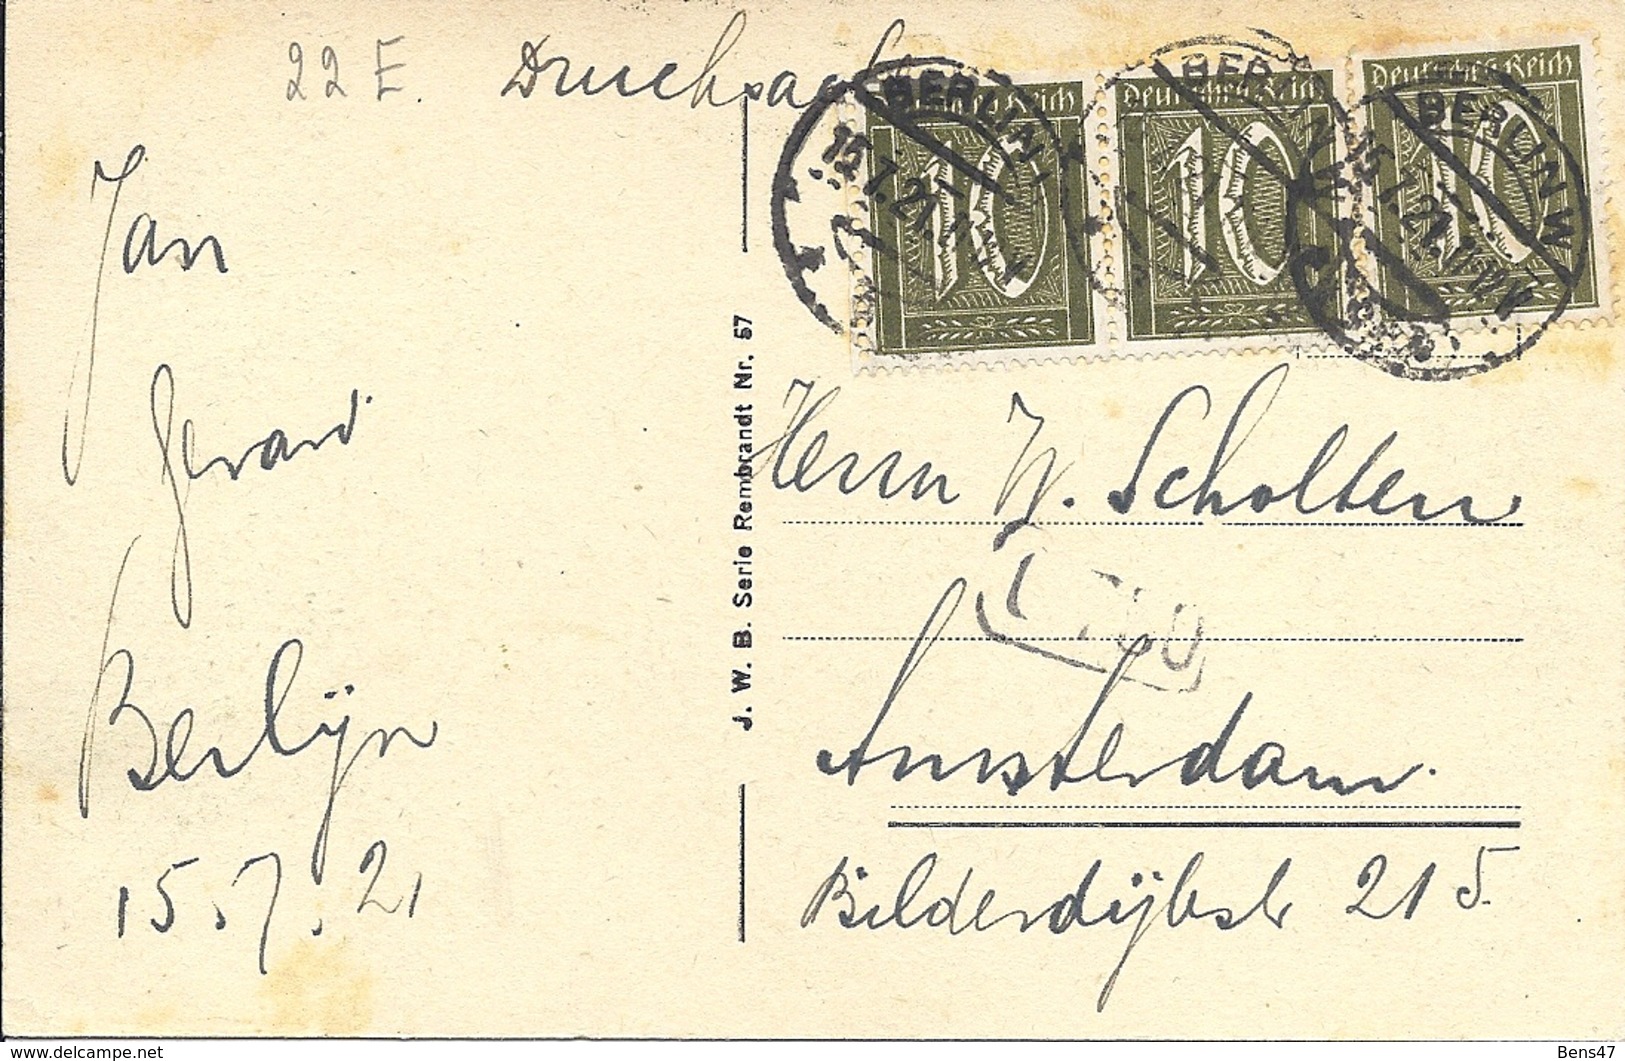 22 E. Drucksache
Deutsches Reich
10
Deutsches Reich
10
Deutsches Reich
10
BERLIN
15.7.21.
BERLIN W
BERLIN W
15.7.21.
Jan
Gerard
Berlijn
15.7.21
J. W. B. Serie Rembrandt Nr. 57
Herrn W. Scholten
Amsterdam.
Bilderdijkstr 215.
delcampe.net
Bens47